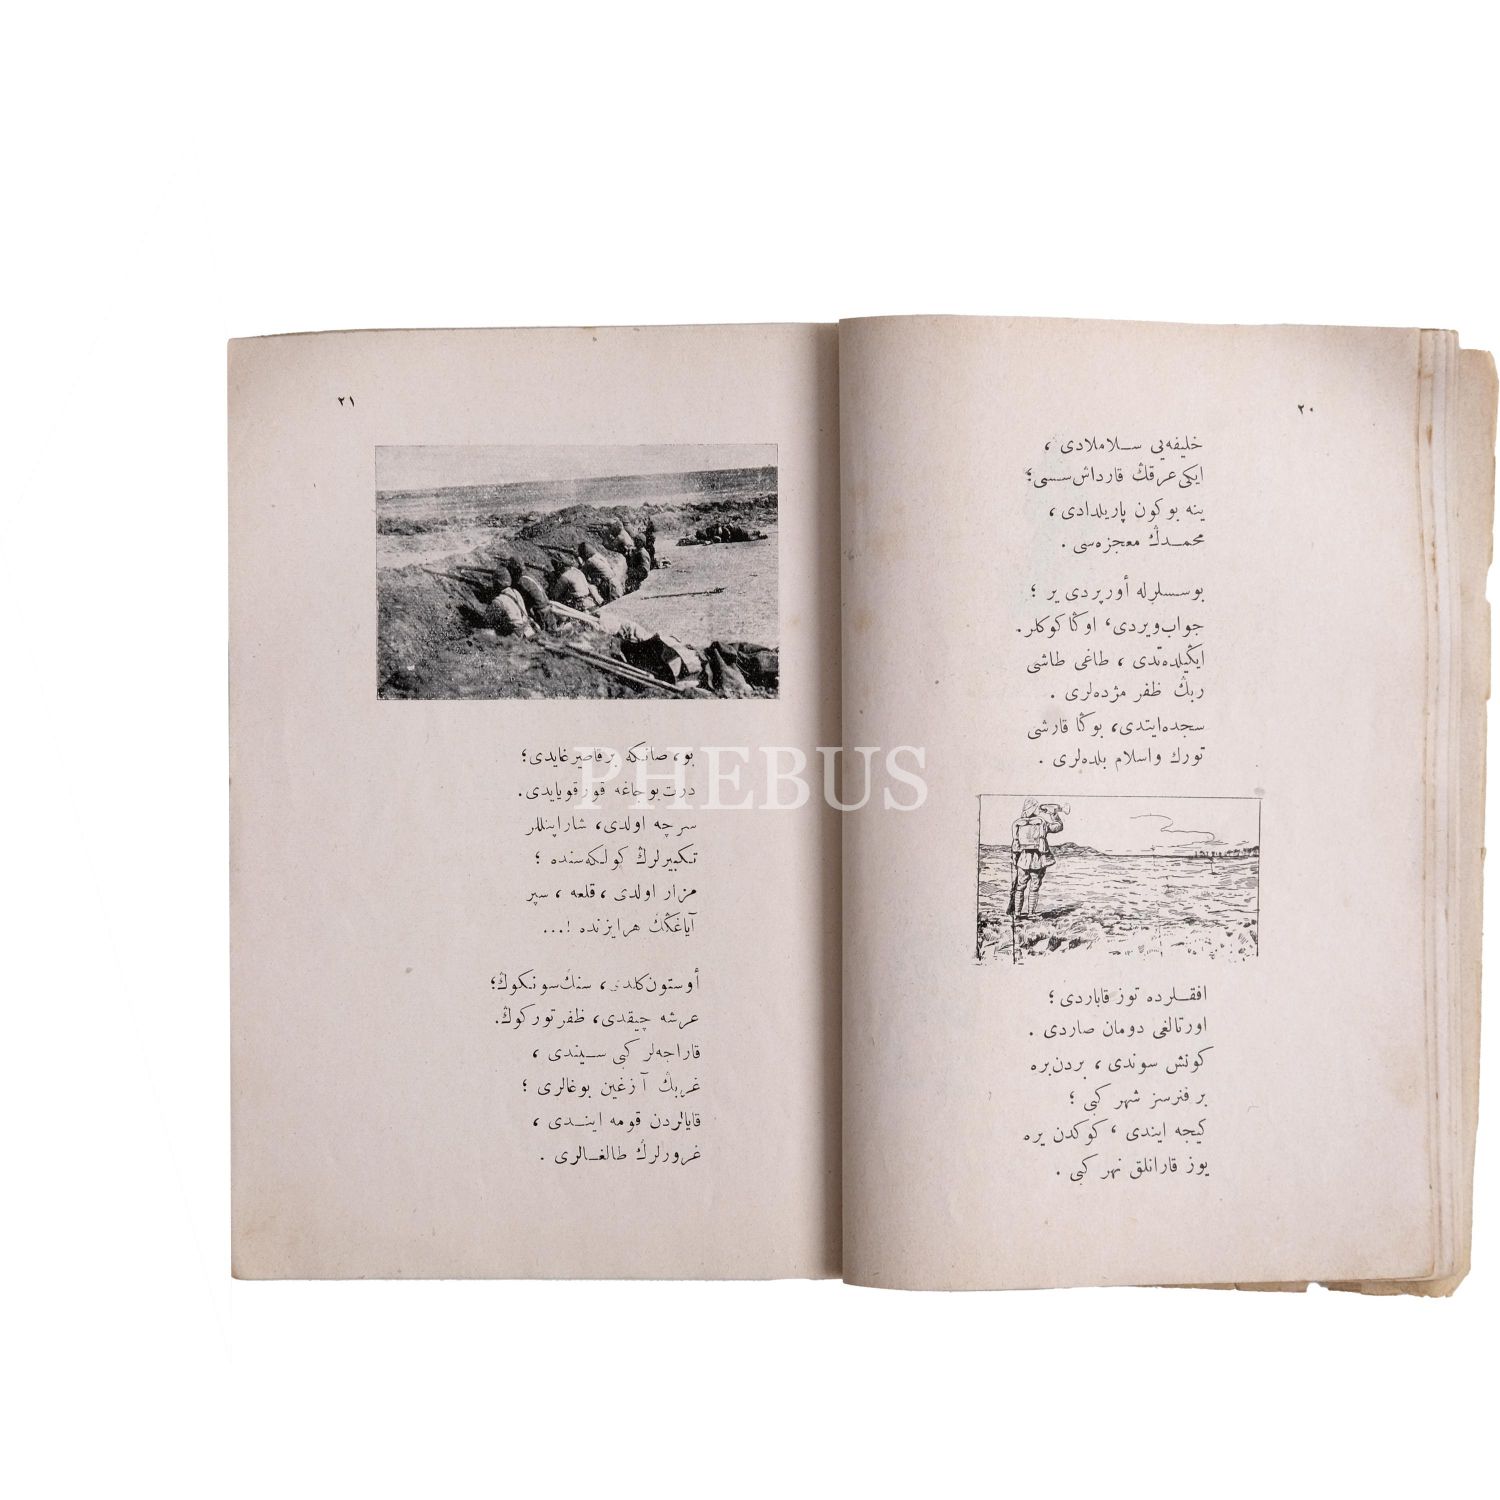 ٢٠
خليفه‌يى سـلاملادى ،
ايكى عرقڭ قارداش سسى؛
ينه بوكون پاريلدادى ،
محمـدڭ معجزه‌سى .
بوسسلرله أورپردى ير ؛
جواب ويردى، اوڭا كوكلر.
ايڭيلده‌تدى ، طاغى طاشى
ربڭ ظفر مژده‌لرى .
سجده ايتدى، بوڭا قارشى
تورك واسلام بلده‌لرى .
افقـلرده توز قاباردى ؛
اورتالغى دومان صاردى .
كونش سوندى ، بردن بره
بر فنرسز شهر كبى ؛
كيجه ايندى ، كوكدن يره
يوز قارانلق نهر كبى .
٢١
بو، صانكه بر قاصيرغايدى؛
درت بوجاغه قورقويايدى.
سرچه اولدى، شاراپنللر
تكبيرلرڭ كولكه‌سنده ؛
مزار اولدى ، قلعه ، سپر
آياغڭڭ هر ايزنده !...
أوستون كلدى، سنڭ سونكوڭ؛
عرشه چيقدى، ظفر توركوڭ.
قاراجه‌لر كبى سـيندى ،
غربڭ آزغين بوغالرى ؛
قايالردن قومه اينـدى ،
غرورلرڭ طالغـالرى .
PHEBUS